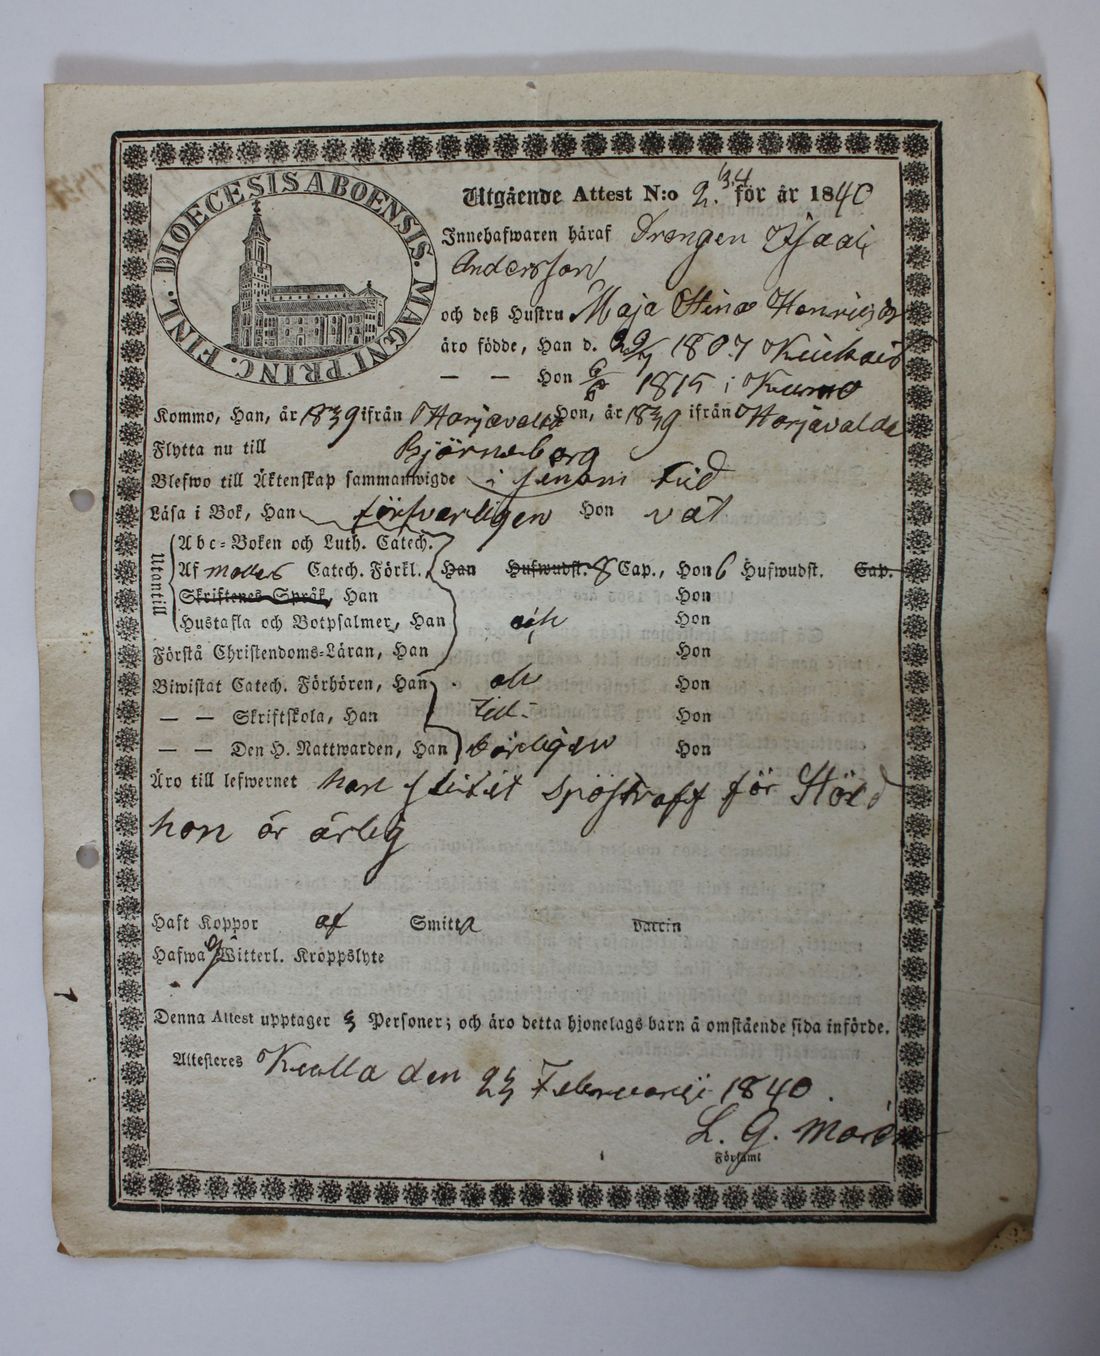 DIOECESIS ABOENSIS. MAGNI PRINC. FINL.
Utgående Attest N:o 2. för år 1840
Innehafwaren häraf Drengen Isaak
Andersson
och deß Hustru Maja Stina Henrigsdr
äro födde, Han d. 29/7 1807 Kiukais
— — Hon 6/6 1815 i Kumo
Kommo, Han, år 1839 ifrån Harjavalda Hon, år 1839 ifrån Harjavalda
Flytta nu till Björneborg
Blefwo till Äktenskap sammanwigde i sinom tid
Läsa i Bok, Han försvarligen Hon väl
Utantill
Abc-Boken och Luth. Catech.
Af Catech. Förkl., Han Hufwudst. 8 Cap., Hon 6 Hufwudst. Cap.
Skriftenes Språk, Han Hon
Hustafla och Botpsalmer, Han och Hon
Förstå Christendoms-Läran, Han
Biwistat Catech. Förhören, Han Hon
— — Skriftskola, Han Hon
— — Den H. Nattwarden, Han börligen Hon
Äro till lefwernet han slitit spöstraff för Stöld
hon är ärlig
Haft Koppor af Smitta vaccin
Hafwa Witterl. Kroppslyte
Denna Attest upptager 3 Personer; och äro detta hjonelags barn å omstående sida införde.
Attesteres Kiulla den 23 Februarii 1840.
L. G.
Församl